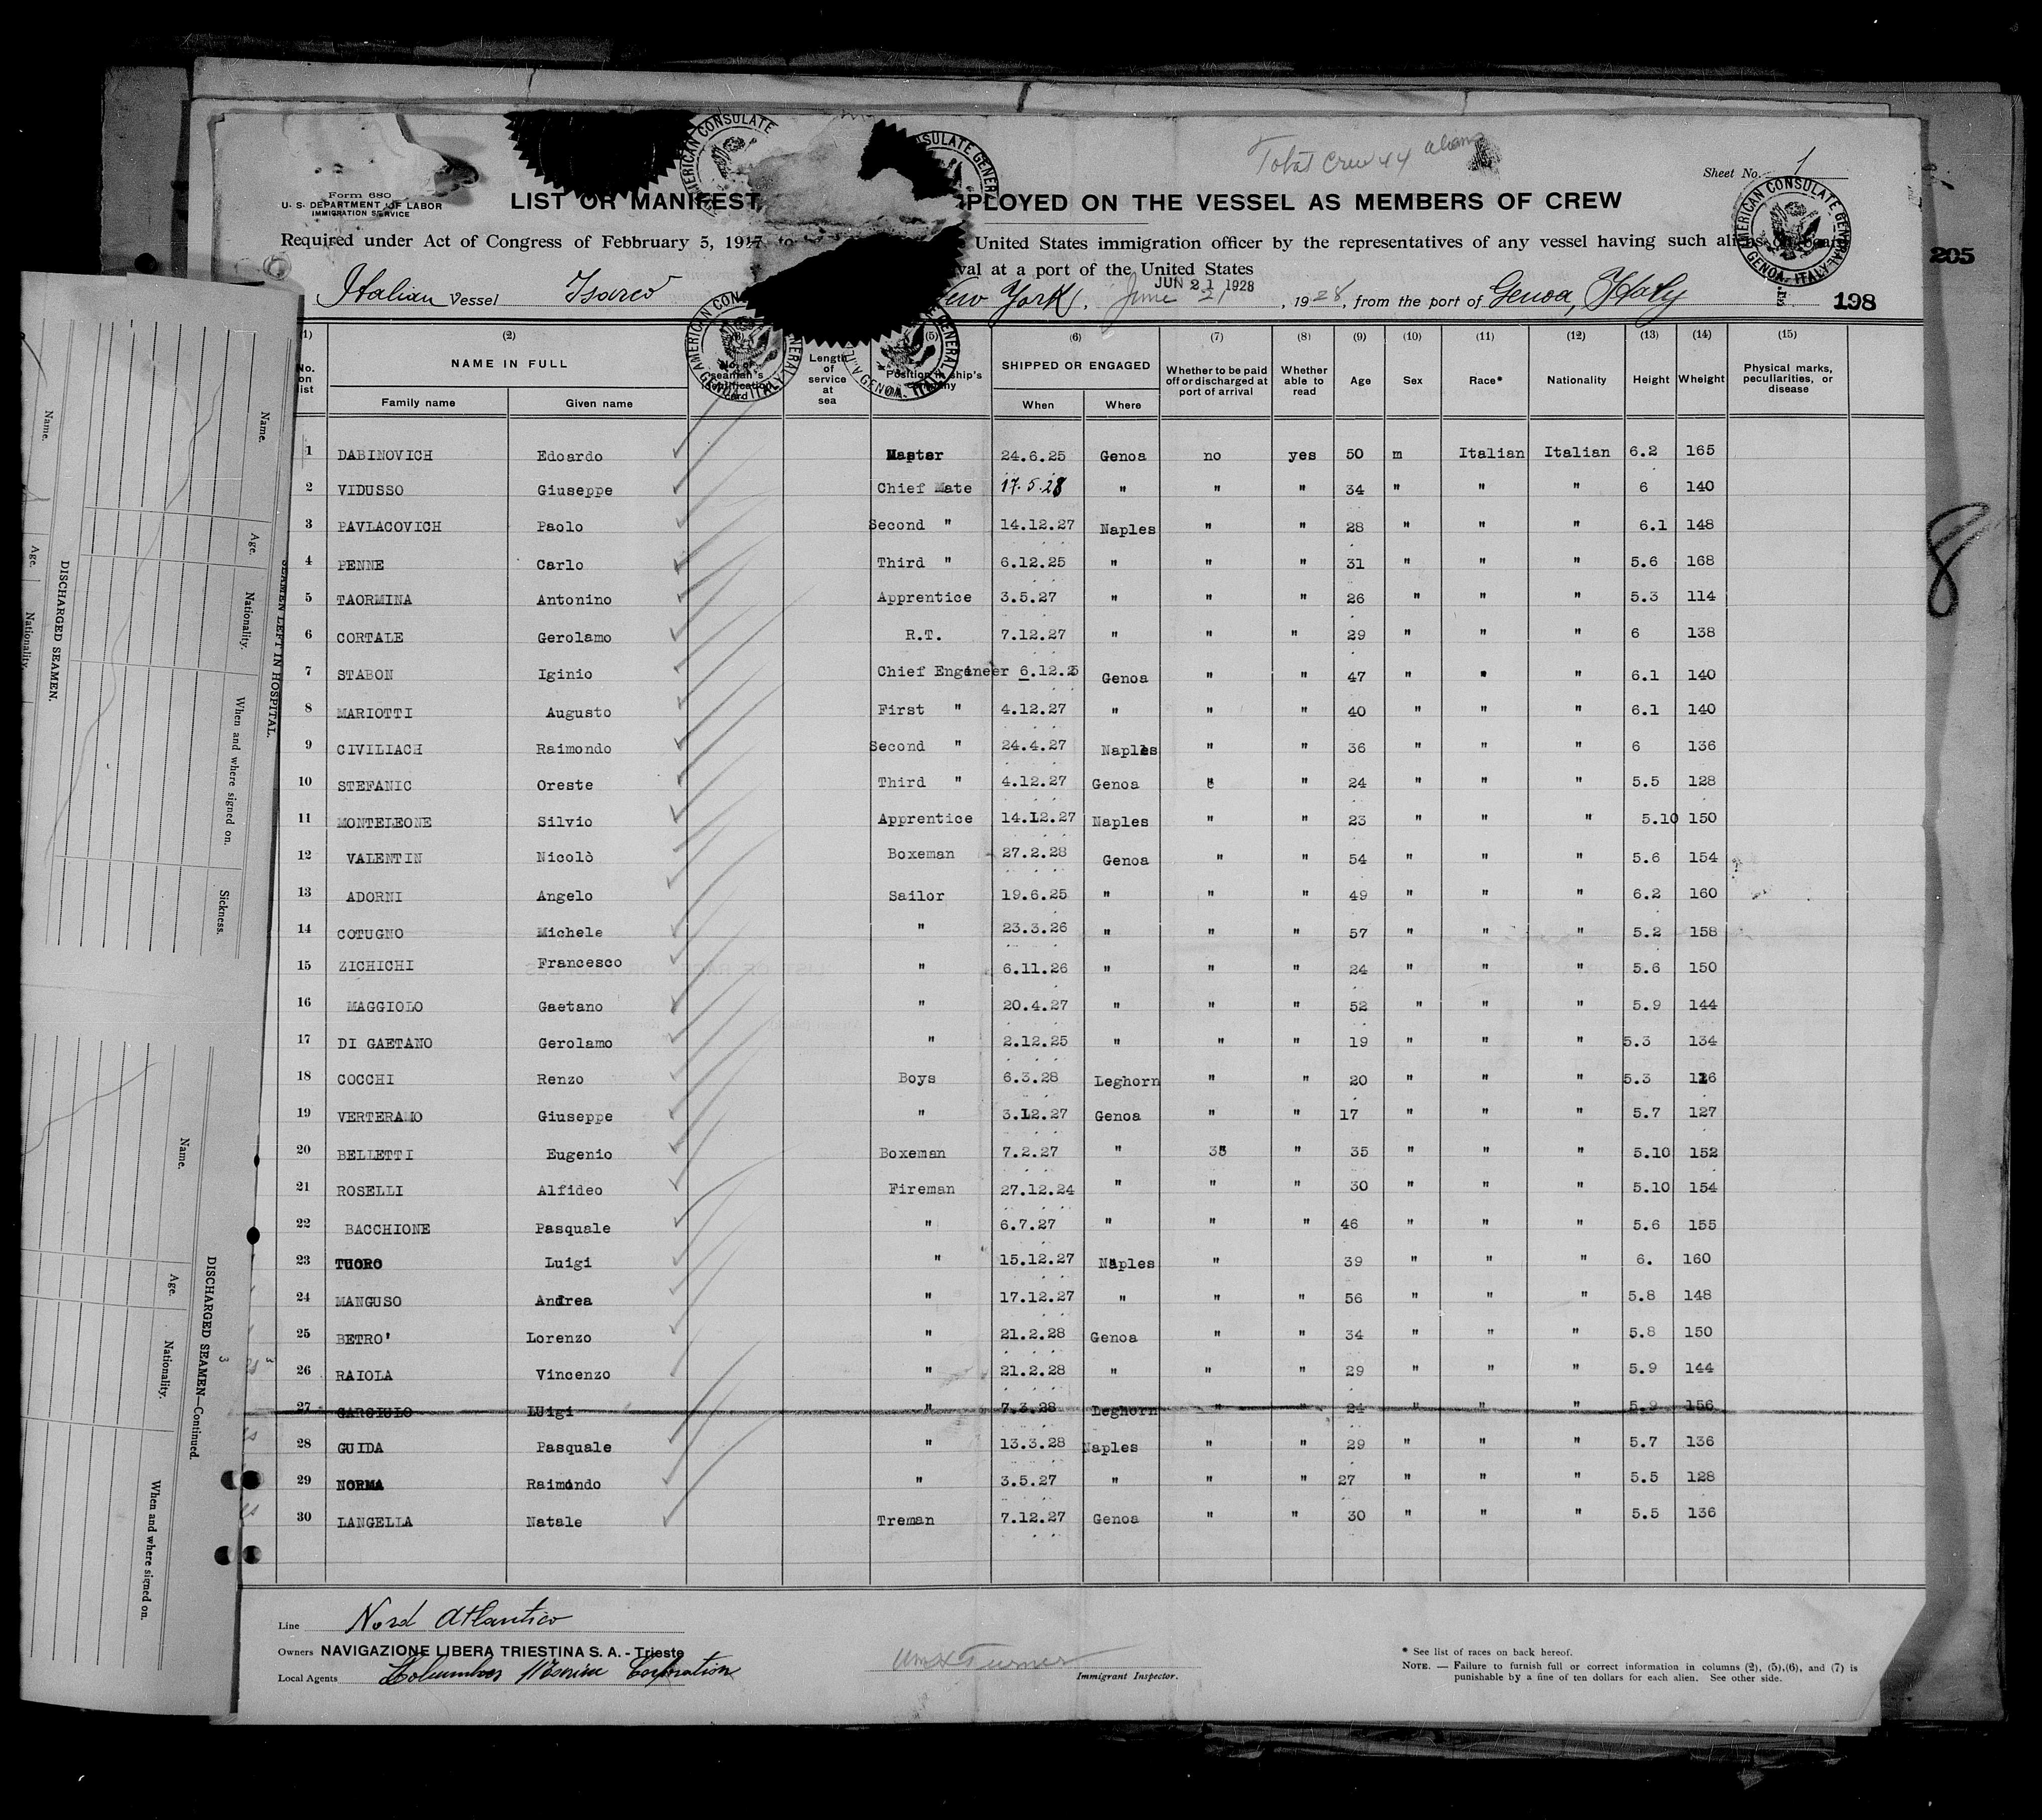 Total Crew 44 aliens
Sheet No. 1
Form 680
U. S. DEPARTMENT OF LABOR
IMMIGRATION SERVICE
LIST OR MANIFEST PLOYED ON THE VESSEL AS MEMBERS OF CREW
Required under Act of Congress of Febbruary 5, 1917, to United States immigration officer by the representatives of any vessel having such aliens on board
val at a port of the United States
205
Italian Vessel Isarco New York, June 21 JUN 21 1928, 1928, from the port of Genoa, Italy 198
AMERICAN CONSULATE GENERAL GENOA, ITALY
(1) (2) (5) (6) (7) (8) (9) (10) (11) (12) (13) (14) (15)
No. on list NAME IN FULL No. of seaman's identification card Length of service at sea Position in ship's company SHIPPED OR ENGAGED Whether to be paid off or discharged at port of arrival Whether able to read Age Sex Race* Nationality Height Wheight Physical marks, peculiarities, or disease
Family name Given name When Where
1 DABINOVICH Edoardo Master 24.6.25 Genoa no yes 50 m Italian Italian 6.2 165
2 VIDUSSO Giuseppe Chief Mate 17.5.28 " " " 34 " " " 6 140
3 PAVLACOVICH Paolo Second " 14.12.27 Naples " " 28 " " " 6.1 148
4 PENNE Carlo Third " 6.12.25 " " " 31 " " " 5.6 168
5 TAORMINA Antonino Apprentice 3.5.27 " " " 26 " " " 5.3 114
6 CORTALE Gerolamo R.T. 7.12.27 " " " 29 " " " 6 138
7 STABON Iginio Chief Engineer 6.12.25 Genoa " " 47 " " " 6.1 140
8 MARIOTTI Augusto First " 4.12.27 " " " 40 " " " 6.1 140
9 CIVILIACH Raimondo Second " 24.4.27 Naples " " 36 " " " 6 136
10 STEFANIC Oreste Third " 4.12.27 Genoa " " 24 " " " 5.5 128
11 MONTELEONE Silvio Apprentice 14.12.27 Naples " " 23 " " " 5.10 150
12 VALENTIN Nicolò Boxeman 27.2.28 Genoa " " 54 " " " 5.6 154
13 ADORNI Angelo Sailor 19.6.25 " " " 49 " " " 6.2 160
14 COTUGNO Michele " 23.3.26 " " " 57 " " " 5.2 158
15 ZICHICHI Francesco " 6.11.26 " " " 24 " " " 5.6 150
16 MAGGIOLO Gaetano " 20.4.27 " " " 52 " " " 5.9 144
17 DI GAETANO Gerolamo " 2.12.25 " " " 19 " " " 5.3 134
18 COCCHI Renzo Boys 6.3.28 Leghorn " " 20 " " " 5.3 126
19 VERTERAMO Giuseppe " 3.12.27 Genoa " " 17 " " " 5.7 127
20 BELLETTI Eugenio Boxeman 7.2.27 " 35 " 35 " " " 5.10 152
21 ROSELLI Alfideo Fireman 27.12.24 " " " 30 " " " 5.10 154
22 BACCHIONE Pasquale " 6.7.27 " " " 46 " " " 5.6 155
23 TUORO Luigi " 15.12.27 Naples " 39 " " " 6. 160
24 MANGUSO Andrea " 17.12.27 " " " 56 " " " 5.8 148
25 BETRO' Lorenzo " 21.2.28 Genoa " " 34 " " " 5.8 150
26 RAIOLA Vincenzo " 21.2.28 " " " 29 " " " 5.9 144
27 GARGIULO LUigi " 7.3.28 Leghorn " " 24 " " " 5.9 156
28 GUIDA Pasquale " 13.3.28 Naples " " 29 " " " 5.7 136
29 NORMA Raimondo " 3.5.27 " " " 27 " " " 5.5 128
30 LANGELLA Natale Treman 7.12.27 Genoa " " 30 " " " 5.5 136
Line Nord Atlantico
Owners NAVIGAZIONE LIBERA TRIESTINA S. A. - Trieste
Local Agents Columbus Marine Corporation
Wm H Turner
Immigrant Inspector.
* See list of races on back hereof.
NOTE. — Failure to furnish full or correct information in columns (2), (5),(6), and (7) is
punishable by a fine of ten dollars for each alien. See other side.
8
SEAMEN LEFT IN HOSPITAL.
Name. Age. Nationality. When and where signed on. Sickness.
DISCHARGED SEAMEN.
Name. Age. Nationality.
DISCHARGED SEAMEN—Continued.
Name. Age. Nationality. When and where signed on.
3